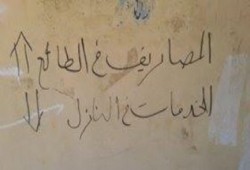 المصاريف في الطالع
الخدمات في النازل